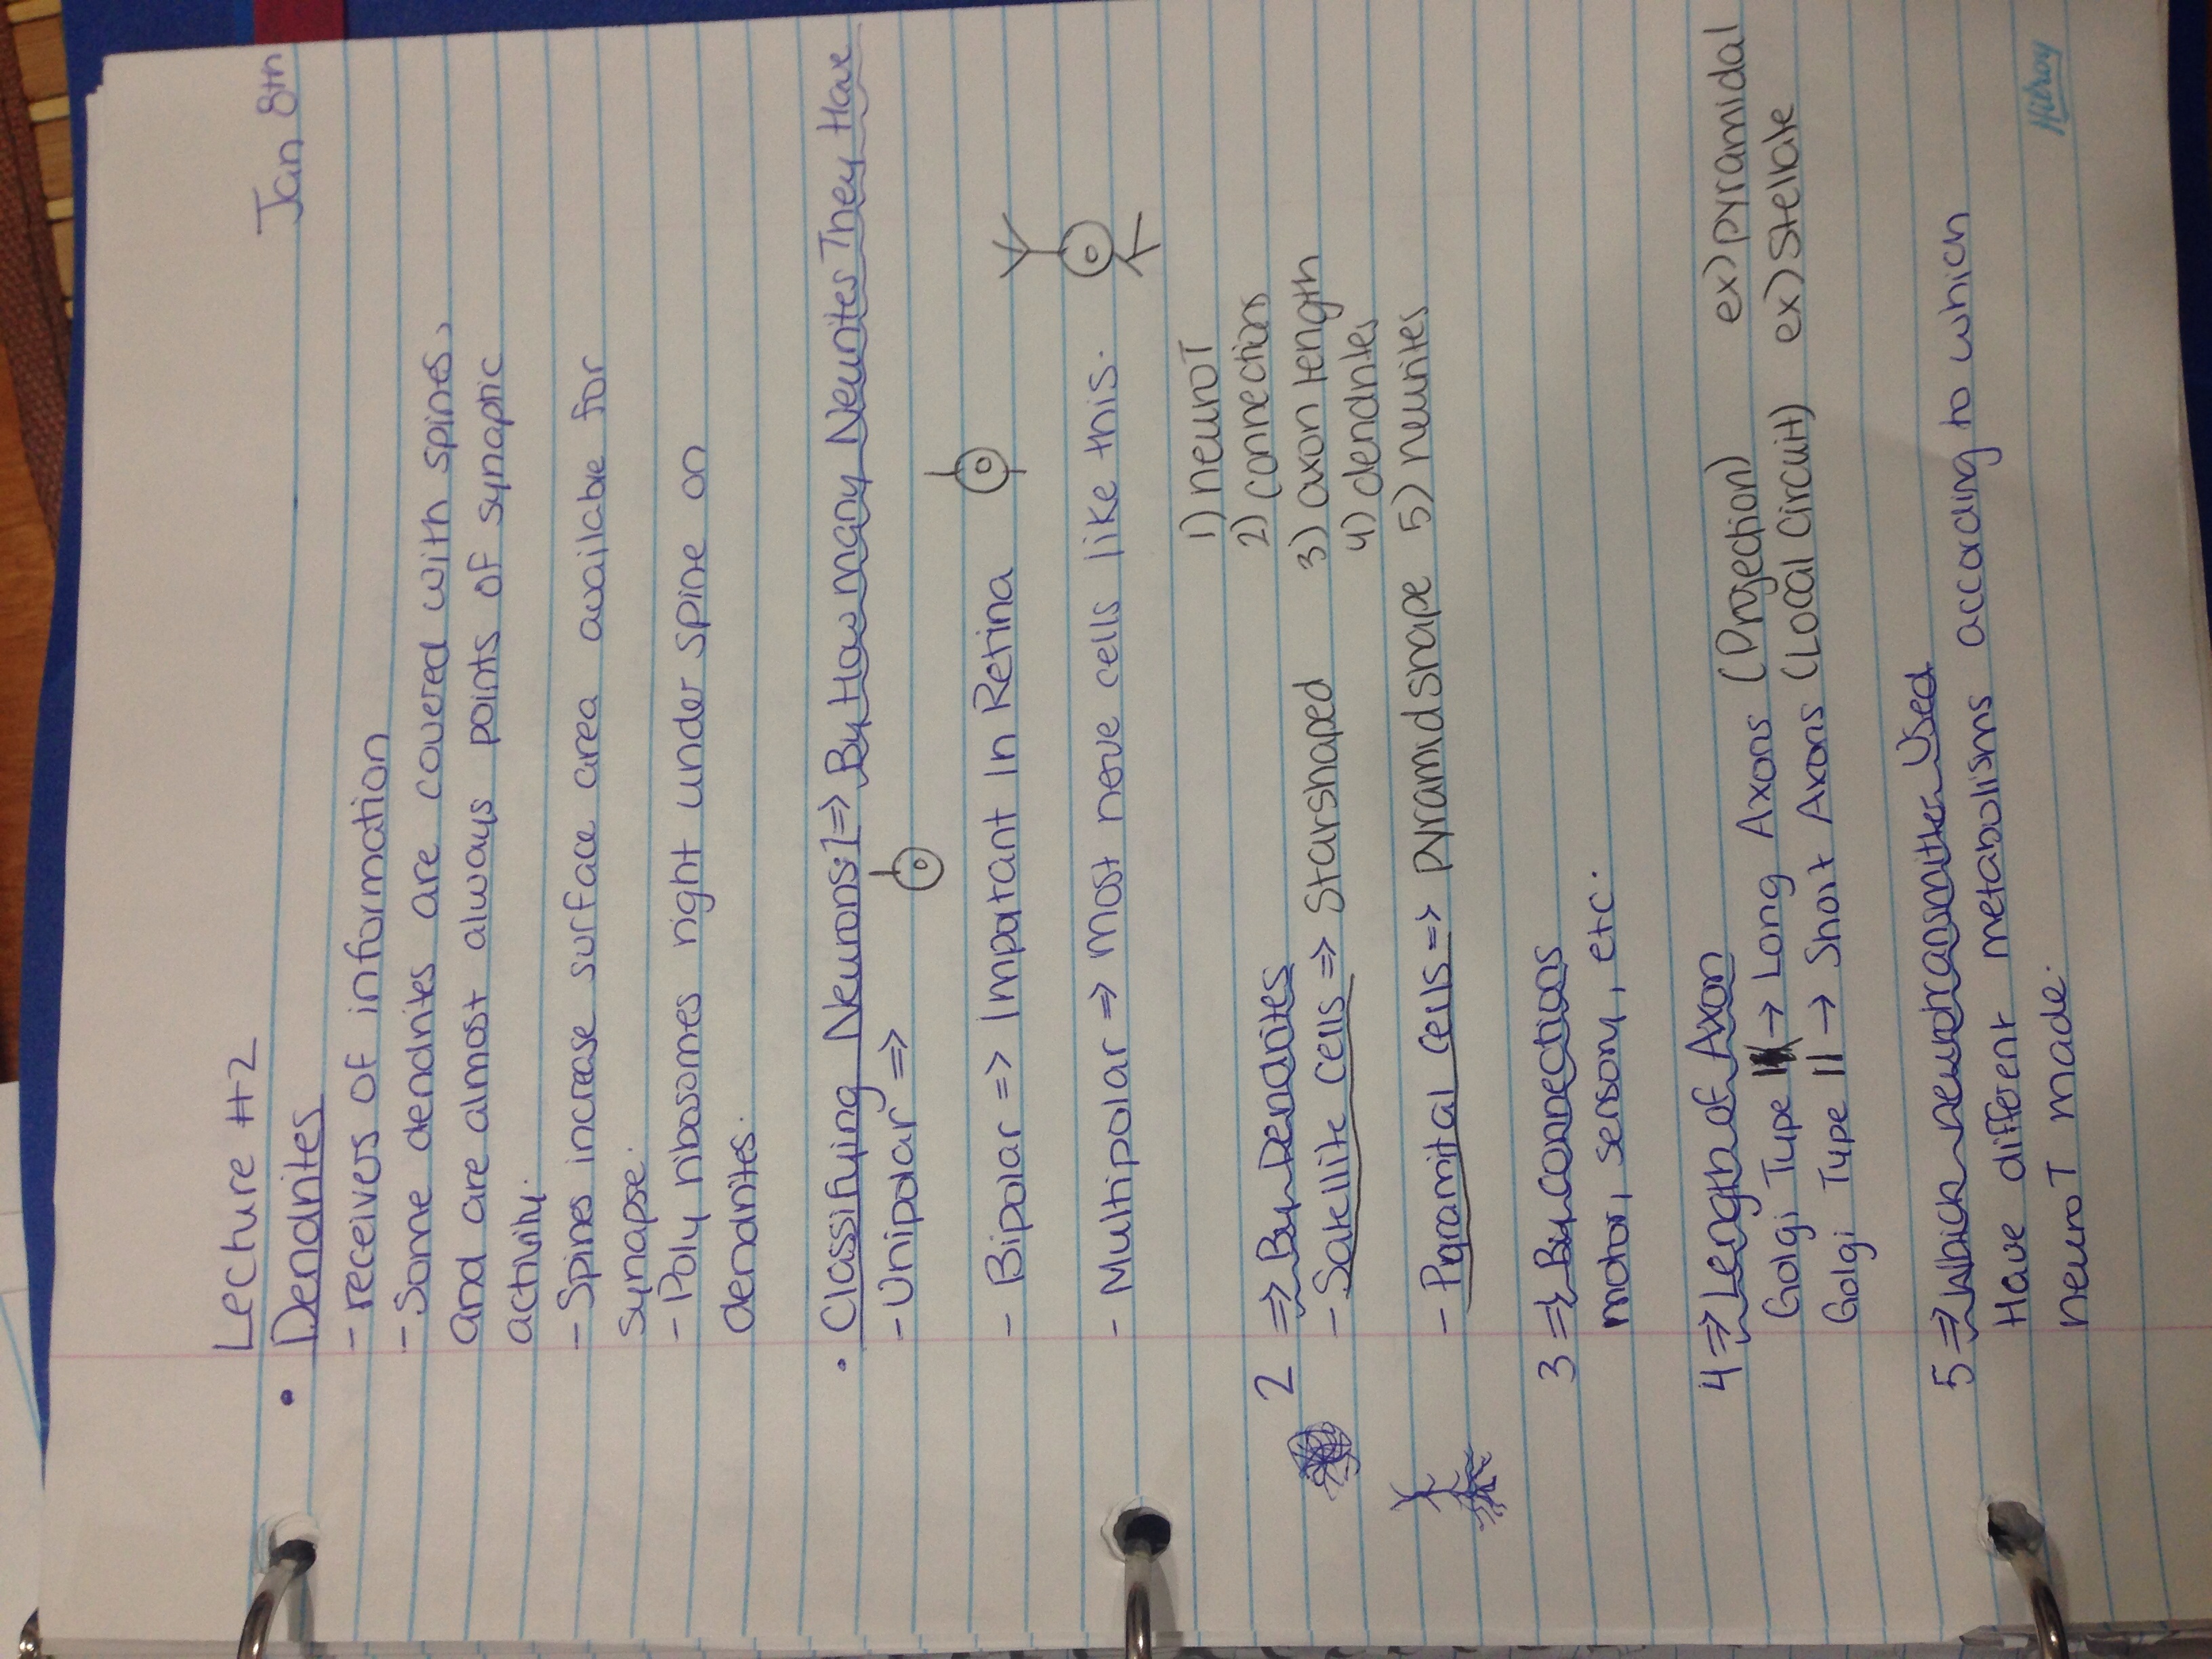 Jan 8th
Lecture #2
• Dendrites
- receivers of information
- Some dendrites are covered with spines,
and are almost always points of synaptic
activity.
- Spines increase surface area availabe for
synapse.
- Poly ribosomes right under spine on
dendrites.
• Classifying Neurons:1=> By How many Neurites They Have
- Unipolar =>
- Bipolar => Imporant In Retina
- Multipolar => Most nerve cells like this.
1) neuroT
2) connections
3) axon length
4) dendrites
5) neurites
2 => By Dendrites
- Satellite cells => Starshaped
- Pyramital cells => pyramid shape
3 => By connections
motor, sensory, etc.
4 => Length of Axon
Golgi Type 1 -> Long Axons (Projection) ex) pyramidal
Golgi Type 11 -> Short Axons (Local Circuit) ex) Stellate
5 => Which neurotransmitter Used
Have different metabolisms according to which
neuroT made.
Hilroy